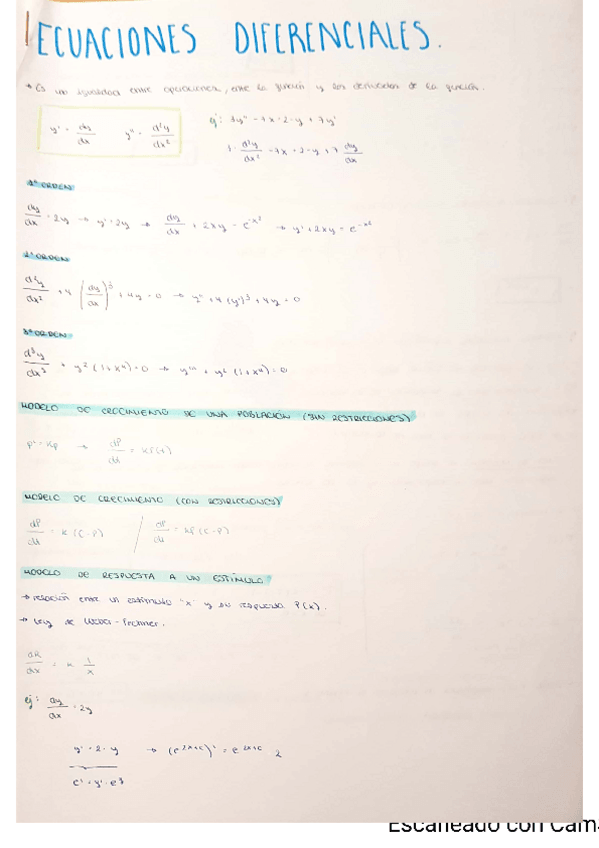 ECUACIONES DIFERENCIALES.
* Es una igualdad entre operaciones, entre la función y las derivadas de la función.
y' = dy/dx   y'' = d²y/dx²   ej: 3y'' - 7x = 2 - y + 7y'
3 · d²y/dx² - 7x = 2 - y + 7 dy/dx
1º ORDEN
dy/dx = 2y → y' = 2y → dy/dx + 2xy = e^-x² → y' + 2xy = e^-x²
2º ORDEN
d²y/dx² + 4 (dy/dx)³ + 4y = 0 → y'' + 4 (y')³ + 4y = 0
3º ORDEN
d³y/dx³ + y² (1+x⁴) = 0 → y''' + y² (1+x⁴) = 0
MODELO DE CRECIMIENTO DE UNA POBLACIÓN (SIN RESTRICCIONES)
P' = KP → dP/dt = KP(t)
MODELO DE CRECIMIENTO (CON RESTRICCIONES)
dP/dt = K (C-P) / dP/dt = KP (C-P)
MODELO DE RESPUESTA A UN ESTÍMULO
→ relación entre un estímulo "x" y su respuesta R(x).
→ Ley de Weber-Fechner.
dR/dx = K 1/x
ej: dy/dx = 2y
y' = 2 · y → (e^2x+c)' = e^2x+c · 2
Escaneado con Cam